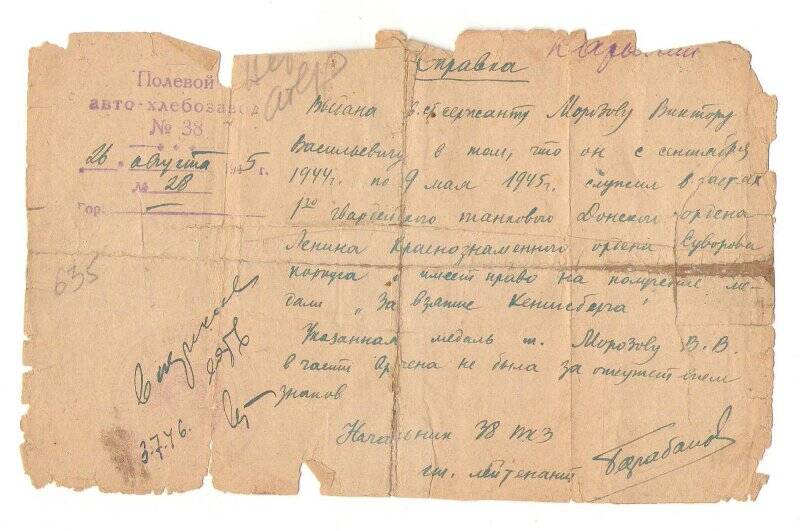 Полевой
авто-хлебозавод
№ 38
26 августа 1945 г.
№ 28
Гор. —
635
В списках
есть
3.7.46.
Справка
Выдана г. ст. сержанту Морозову Виктору
Васильевичу в том, что он с сентября
1944г. по 9 мая 1945г. служил в частях
1го гвардейского танкового Донского ордена
Ленина Краснознаменного ордена Суворова
корпуса и имеет право на получение ме-
дали „За взятие Кенигсберга"
Указанная медаль т. Морозову В. В.
в части вручена не была за отсутствием
знаков
Начальник 38 ПХЗ
ст. лейтенант Барабанов